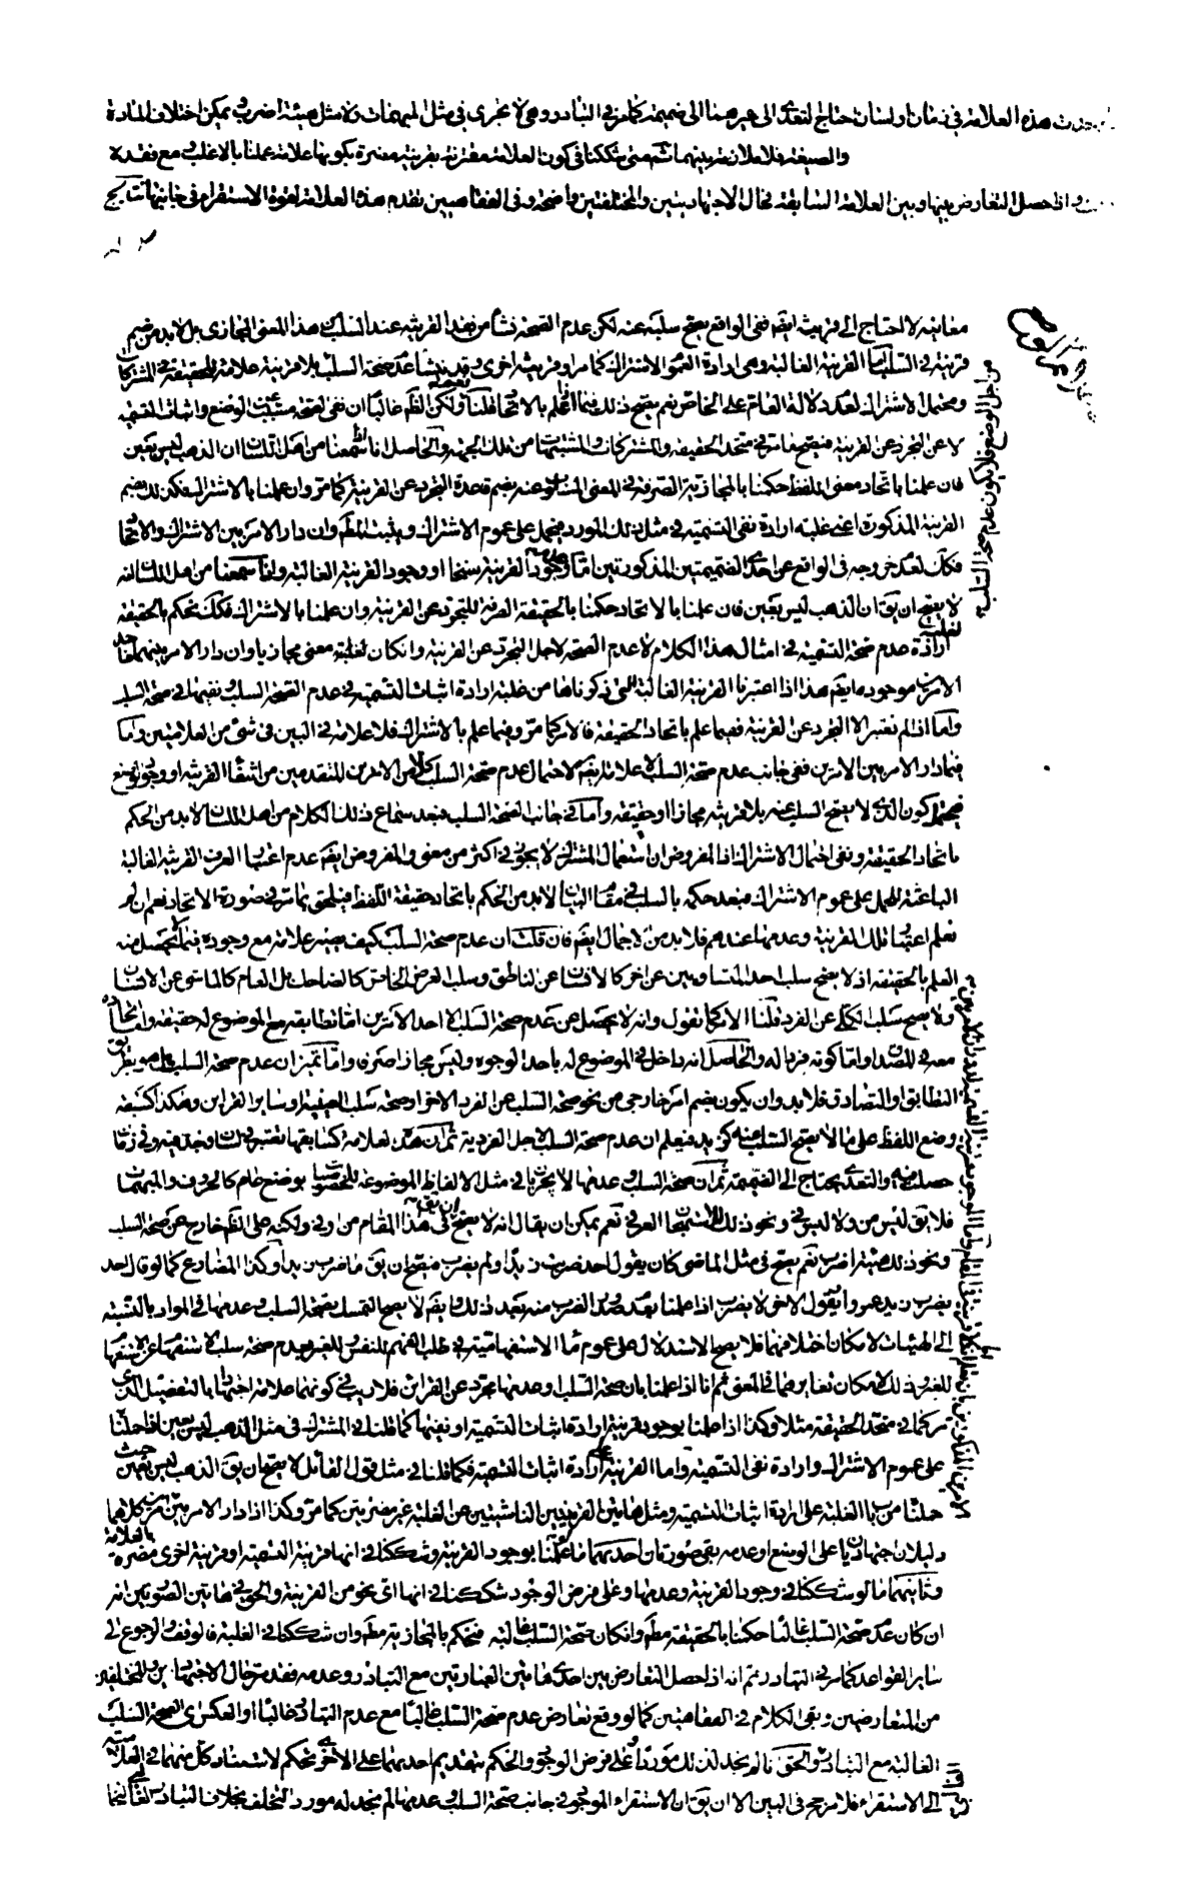 وجدت هذه العلامة في زمان او لسان تحتاج التعدى الى غيرهما الى ضميمة كما مر في التبادر وهى لا تجرى في مثل المبهمات ولا مثل هيئة اضرب يمكن اختلاف المادة
والصيغة فلا ملازمة بينهما ثم متى شككنا في كون العلامة مقترنة بقرينة مضرة بكونها علامة عملنا بالاغلب مع فقده
واذا حصل التعارض بينها وبين العلامة السابقة فحال الاجتهاديتين والمختلفتين واضحة وفى الفقاهيتين تقدم هذه العلامة لقوة الاستقراء في جانبها
معانيه لاحتاج الى قرينة ايضم ففى الواقع يصح سلبه عنه لكن عدم الصحة نشأ من فقد القرينة عند السلب هذا المعنى المجازى بل لابد من ضم
قرينة في السلب اما القرينة الغالبة وهى ارادة العموم الاشتراك كما مر او قرينة اخرى
ومحتمل الاشتراك لعدم دلالة العام على الخاص نعم يصح ذلك فيما علم بالاتحاد
لا عن التجرد عن القرينة فيصح ما مر في متحد الحقيقة والمشتركات والمشتبهات من تلك الجهة والحاصل انا اذا سمعنا من اهل اللسان ان الذهب ليس بعين
فان علمنا باتحاد معنى اللفظ حكمنا بالمجازية الصرفة في المعنى المسلوب عنه بضم قاعدة التجرد عن القرينة كما مر وان علمنا بالاشتراك فكذلك بضم
القرينة المذكورة اعنى غلبة ارادة نفى التسمية في مثل ذلك المورد فيحمل على عموم الاشتراك ويثبت المط وان دار الامر بين الاشتراك والاتحاد
فكك لعدم خروجه في الواقع عن احدى الضميمتين المذكورتين اما عدم وجود القرينة سنخا او وجود القرينة الغالبة واذا سمعنا من اهل اللسان انه
لا يصح ان يق ان الذهب ليس بعين فان علمنا بالاتحاد حكمنا بالحقيقة الصرفة للتجرد عن القرينة وان علمنا بالاشتراك فكك نحكم بالحقيقة
لغلبة ارادة عدم صحة التسمية في امثال هذا الكلام لا عدم الصحة لاجل التجرد عن القرينة وان كان لغلبة معنى مجازيا وان دار الامر بينهما فاحد
الامرين موجود ايضم هذا اذا اعتبرنا القرينة الغالبة التى ذكرناها من غلبة ارادة اثبات التسمية في عدم الصحة السلب ونفيها في صحة السلب
واما ان لم نعتبر الا التجرد عن القرينة ففيما علم باتحاد الحقيقة فالامر كما مر وفيما علم بالاشتراك فلا علامة في البين في شئ من العلامتين واما
فيما دار الامر بين الامرين ففى جانب عدم صحة السلب لا علامة ايضم لاحتمال عدم صحة السلب كلا من الامرين المتقدمين من انتفاء القرينة او وجود الوضع
فيحتمل كون الذى لا يصح السلب عنه بلا قرينة مجازا او حقيقة واما في جانب الصحة السلب فبعد سماع ذلك الكلام من اهل اللسان لابد من الحكم
باتحاد الحقيقة ونفى احتمال الاشتراك اذ المفروض ان استعمال المشترك لا يجوز في اكثر من معنى والمفروض ايضم عدم اعتبار العرف القرينة الغالبة
الباعثة للحمل على عموم الاشتراك فبعد حكمه بالسلب في مقام البيان لابد من الحكم باتحاد حقيقة اللفظ فيلحق بما مر في صورة الاتحاد نعم ان لم
نعلم اعتبار تلك القرينة وعدمها عندهم فلابد من الاجمال ايضم فان قلت ان عدم صحة السلب كيف يصير علامة مع وجوده فيما لا يحصل منه
العلم بالحقيقة اذ لا يصح سلب احد المتساويين عن اخر كالانسان عن الناطق وسلب العرض الخاص كالضاحك بل العام كالماشى عن الانسان
ولا يصح سلب الكلى عن الفرد قلنا الامر كما تقول وانه لا يحصل من عدم صحة السلب الا احد الامرين اما تطابقه مع الموضوع له حقيقة واتحاده
معه في المصداق واما كونه فردا له والحاصل انه داخل في الموضوع له باحد الوجوه وليس مجازا صرفا واما تميز ان عدم صحة السلب هل هو بطريق
التطابق او التصادق فلابد وان يكون بضم امر خارجى من نحو صحة السلب عن الفرد الاخر او صحة سلب الحيثية او سائر القرائن وهكذا كشفه
وضع اللفظ على ما لا يصح السلب عنه كزيد فنعلم ان عدم صحة السلب لاجل الفردية ثم ان هذه العلامة كسابقها تعتبر في لسان وجد فيه وفي زمان
حصلت فيه والتعدى يحتاج الى الضميمة ثم ان صحة السلب وعدمها لا يجريان في مثل الالفاظ الموضوعة للخصوصيات بوضع عام كالحروف والمبهمات
فلا يق ليس من ولا ليس في ونحو ذلك للاستهجان العرفى نعم يمكن ان يقال انه لا يصح ان يق في هذا المقام من او في ولكنه على الظ خارج عن صحة السلب
ونحو ذلك صيغة اضرب نعم يصح في مثل الماضى كان يقول احد ضربت زيدا ولم يضرب فيصح ان يق ما ضرب زيدا وكذا المضارع كما لو قال احد
يضرب زيد عمروا يقول الاخر لا يضرب اذا علمنا بعدم صدور الضرب منه بعد ذلك وايضم لا يصح التمسك بصحة السلب وعدمها في المواد بالنسبة
الى الهيئات لامكان اختلافهما فلا يصح الاستدلال على عموم ما الاستفهامية في طلب الفهم للنفس للغير بعدم صحة سلب الاستفهام عن الاستفهام
للغير وذلك لامكان تغايرهما في المعنى ثم انا اذا علمنا بان صحة السلب وعدمها مجرد عن القرائن فلا ريب في كونهما علامة اجتهاديا بالتفصيل الذى
مر كما في متحد الحقيقة مثلا وكذا اذا علمنا بوجود قرينة ارادة اثبات التسمية او نفيها كما قلنا في المشترك في مثل الذهب ليس بعين اذا حملنا
على عموم الاشتراك وارادة نفى التسمية واما القرينة على ارادة اثبات التسمية فكما قلنا في مثل قول القائل لا يصح ان يق الذهب ليس بعين حيث
حملنا من باب الغلبة على ارادة اثبات التسمية ومثل هاتين القرينتين الناشئتين عن الغلبة غير مضرتين كما مر وكذا اذا دار الامر بين امرين كلاهما
دليلان اجتهاديا على الوضع او عدمه بقى صورتان احديهما ما علمنا بوجود القرينة وشككنا في انها قرينة التسمية او قرينة اخرى مضرة بالعلامة
وثانيتهما ما لو شككنا في وجود القرينة وعدمها وعلى فرض الوجود شككنا في انها اى نحو من القرينة والحق في هاتين الصورتين انه
ان كان عدم صحة السلب غالبا حكمنا بالحقيقة مط وان كان صحة السلب غالبة فنحكم بالمجازية مط وان شككنا في الغلبة فالوقف والرجوع الى
ساير القواعد كما مر في التبادر ثم انه اذا حصل التعارض بين احدى هاتين العلامتين مع التبادر وعدمه فقد مر حال الاجتهاديين والمختلفين
من المتعارضين وبقى الكلام في الفقاهيتين كما لو وقع تعارض عدم صحة السلب غالبا مع عدم التبادر غالبا او العكس اى صحة السلب
الغالبة مع التبادر والحق انا لم نجد لذلك موردا وعلى فرض الوجود والحكم بتقديم احديهما على الاخرى تحكم لاستناد كل منهما في العلامية
الى الاستقراء فلا مرجح في البين الا ان يق ان الاستقراء الموجود في جانب صحة السلب وعدمها لم نجد له مورد التخلف بخلاف التبادر